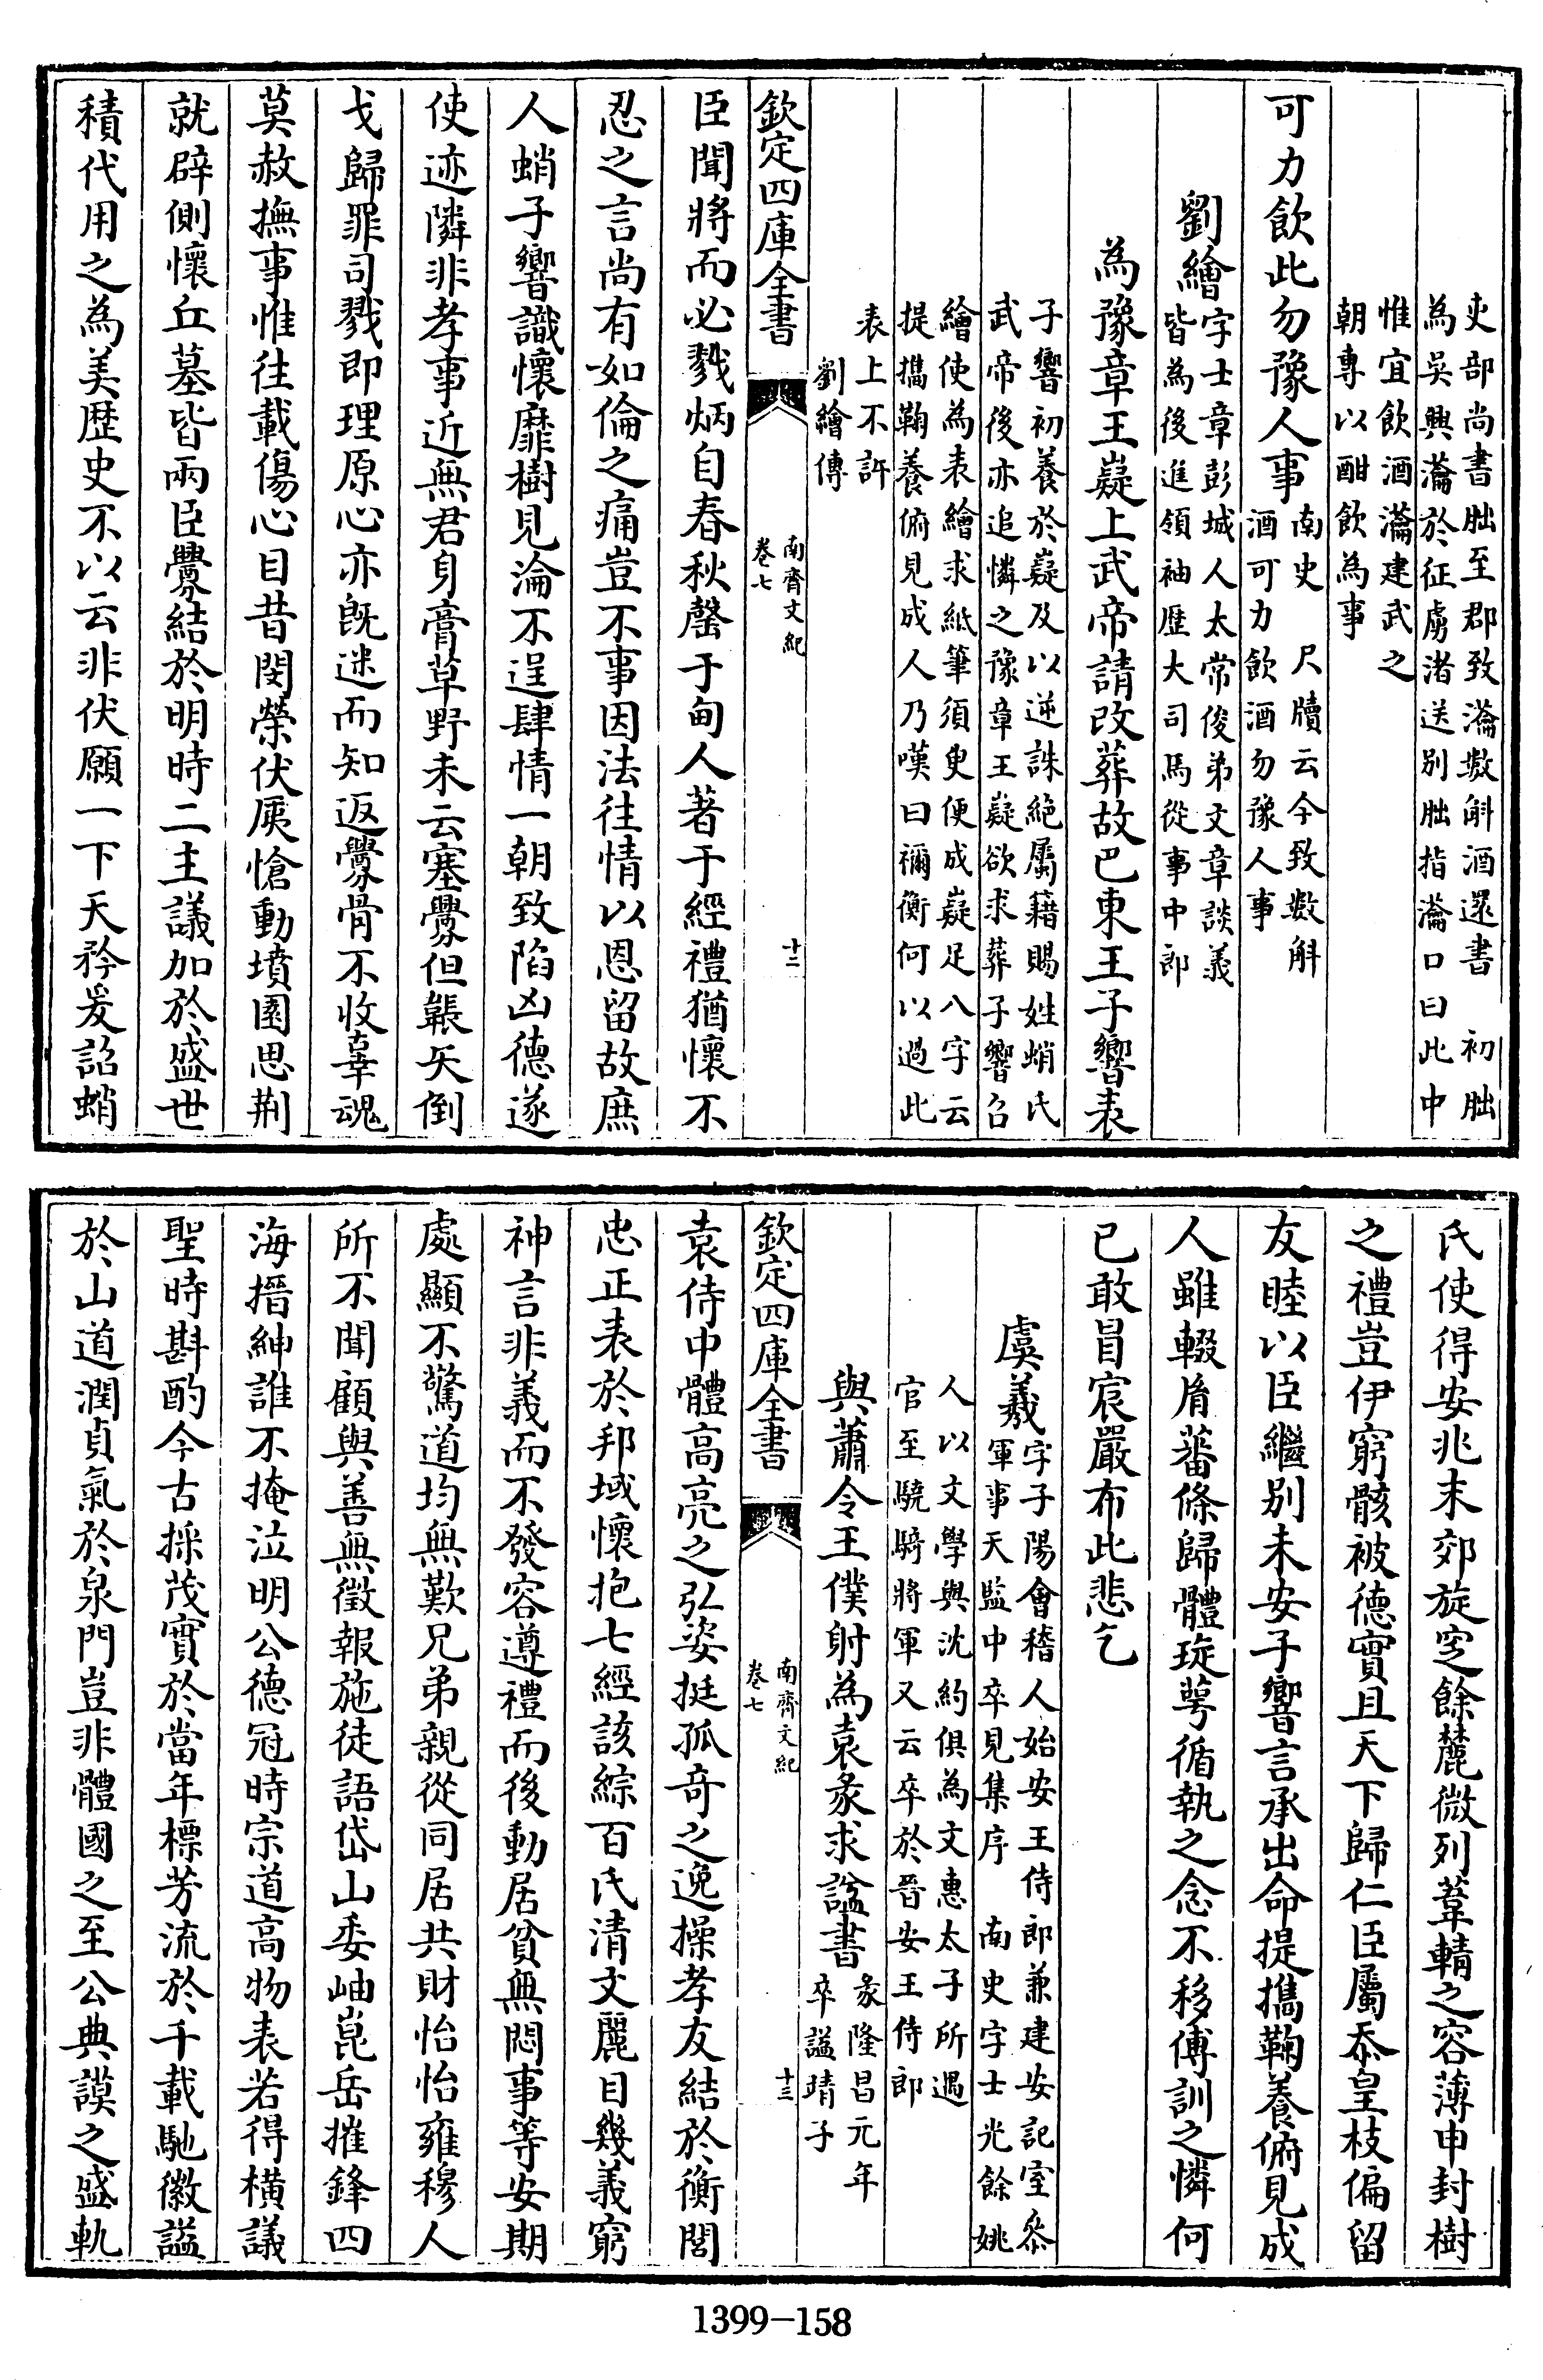 吏部尚書朏至郡致瀹數斛酒還書　初朏
為吳興瀹於征虜渚送别朏指瀹口曰此中
惟宜飲酒瀹建武之
朝專以酣飲為事
可力飲此勿豫人事 南史　尺牘云今致數斛
酒可力飲酒勿豫人事
劉繪 字士章彭城人太常俊弟文章談義
皆為後進領袖歷大司馬從事中郎
為豫章王嶷上武帝請改葬故巴東王子響表
子響初養於嶷及以逆誅絶屬籍賜姓蛸氏
武帝後亦追憐之豫章王嶷欲求葬子響召
繪使為表繪求紙筆須臾便成嶷足八字云
提攜鞠養俯見成人乃嘆曰禰衡何以過此
表上不許
劉繪傳
欽定四庫全書
南齊文紀
卷七
十二
臣聞將而必戮炳自春秋罄于甸人著于經禮猶懷不
忍之言尚有如倫之痛豈不事因法往情以恩留故庶
人蛸子響識懷靡樹見淪不逞肆情一朝致陷凶德遂
使迹隣非孝事近無君身膏草野未云塞釁但韔矢倒
戈歸罪司戮即理原心亦既迷而知返釁骨不收辜魂
莫赦撫事惟往載傷心目昔閔榮伏戾愴動墳園思荆
就辟側懷丘墓皆兩臣釁結於明時二主議加於盛世
積代用之為美歷史不以云非伏願一下天矜爰詔蛸
氏使得安兆末郊旋窆餘麓微列葦輤之容薄申封樹
之禮豈伊窮骸被德實且天下歸仁臣屬忝皇枝偏留
友睦以臣繼别未安子響言承出命提攜鞠養俯見成
人雖輟胤蕃條歸體琁萼循執之念不移傅訓之憐何
已敢冒宸嚴布此悲乞
虞羲 字子陽會稽人始安王侍郎兼建安記室叅
軍事天監中卒見集序　南史字士光餘姚
人以文學與沈約俱為文惠太子所遇
官至驍騎將軍又云卒於晉安王侍郎
與蕭令王僕射為袁彖求諡書 彖隆昌元年
卒諡靖子
欽定四庫全書
南齊文紀
卷七
十三
袁侍中體高亮之弘姿挺孤奇之逸操孝友結於衡閭
忠正表於邦域懷抱七經該綜百氏清文麗目幾義窮
神言非義而不發容遵禮而後動居貧無悶事等安期
處顯不驚道均無歎兄弟親從同居共財怡怡雍穆人
所不聞顧與善無徵報施徒語岱山委岫崑岳摧鋒四
海搢紳誰不掩泣明公德冠時宗道高物表若得横議
聖時斟酌今古採茂實於當年標芳流於千載馳徽諡
於山道潤貞氣於泉門豈非體國之至公典謨之盛軌
1399-158